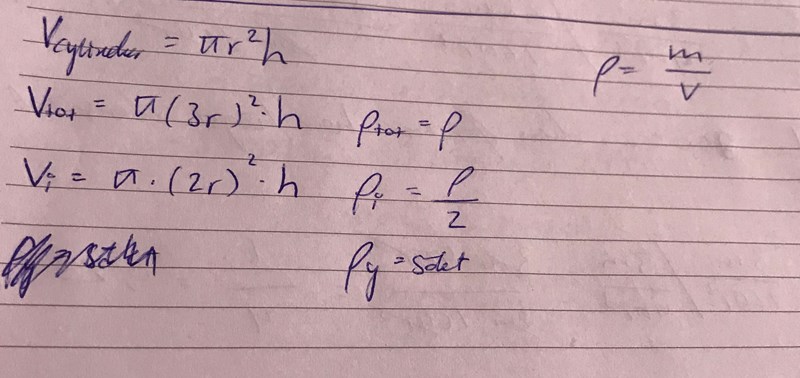 Vcylinder = πr²h
ρ = m/V
Vtot = π(3r)²·h ρtot = ρ
Vi = π·(2r)²·h ρi = ρ/2
ρy = sökt